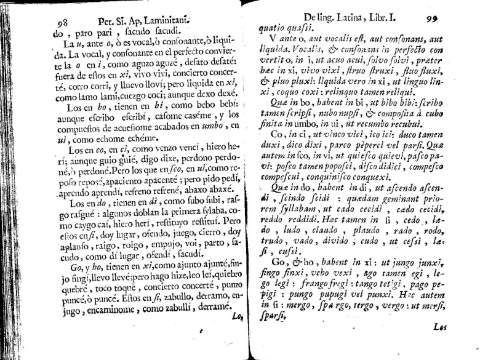 98 Pet. SI. Ap. Laminitani.
do, paro pari, faculo facudi.
La u, ante o, ò es vocal, ò consonante, ò liqui-
da. La vocal, y consonante en el perfecto convier-
te la o en i, como aguzo aguzé, desato desaté:
fuera de estos en xi, vivo vivi, concierto concer-
té, corro corri, y lluevo llovi; pero liquida en xi,
como lamo lami, cuego coci; aunque dexo dexé.
Los en bo, tienen en bi, como bebo bebi:
aunque escribo escribi, casome caséme, y los
compuestos de acuesome acabados en umbo, en
ui, como echome echéme.
Los en co, en ci, como venzo venci, hiero he-
ri; aunque guio guié, digo dixe, perdono perdo-
né, ò perdoné. Pero los que en sco, en ui, como re-
poso reposé, apaciento apacenté; y pido pedi,
aprendo aprendi, refreno refrené, abaxo abaxé.
Los en do, tienen en di, como subo subi, ras-
go rasgué: algunos doblan la primera sylaba, co-
mo caygo cai, hiero heri, restituyo restitui. Pero
estos en si, doy lugar, ofendo, juego, cierro, doy
aplauso, raigo, rolgo, empujo, voi, parto, sa-
cudo, como di lugar, ofendi, sacudi.
Go, y ho, tienen en xi, como ajunto ajunté, fin-
jo fingi, llevo llevé: pero hago hize, leo lei, quiebro
quebré, toco toqué, concierto concerté, punzo
puncé, ò puncé. Estos en si, zabullo, derramo, en-
jugo, encaminome, como zabulli, derramé.
Lo,
De ling. Latina, Libr. I. 99
quatio quassi.
V ante o, aut vocalis est, aut consonans, aut
liquida. Vocalis, & consonans in perfecto con-
vertit o, in i, ut acuo acui, solvo solvi, præter
hæc in xi, vivo vixi, struo struxi, fluo fluxi,
& pluo pluxi: liquida vero in xi, ut linguo lin-
xi, coquo coxi: relinquo tamen reliqui.
Quæ in bo, habent in bi, ut bibo bibi: scribo
tamen scripsi, nubo nupsi, & composita à cubo
finita in umbo, in ui, ut recumbo recubui.
Co, in ci, ut vinco vici, ico ici: duco tamen
duxi, dico dixi, parco peperci vel parsi. Quæ
autem in sco, in vi, ut quiesco quievi, pasco pa-
vi: posco tamen poposci, disco didici, compesco
compescui, conquinisco conquexi.
Quæ in do, habent in di, ut ascendo ascen-
di, scindo scidi: quædam geminant prio-
rem syllabam, ut cado cecidi, cædo cecidi,
reddo reddidi. Hæc tamen in si, cedo, læ-
do, ludo, claudo, plaudo, rado, rodo,
trudo, vado, divido; cudo, ut cessi, læ-
si, cusi.
Go, & ho, habent in xi: ut jungo junxi,
fingo finxi, veho vexi, ago tamen egi, le-
go legi: frango fregi: tango tetigi, pago pe-
pigi: pungo pupugi vel punxi. Hæc autem
in si: mergo, spargo, tergo, vergo: ut mersi,
sparsi.
Los